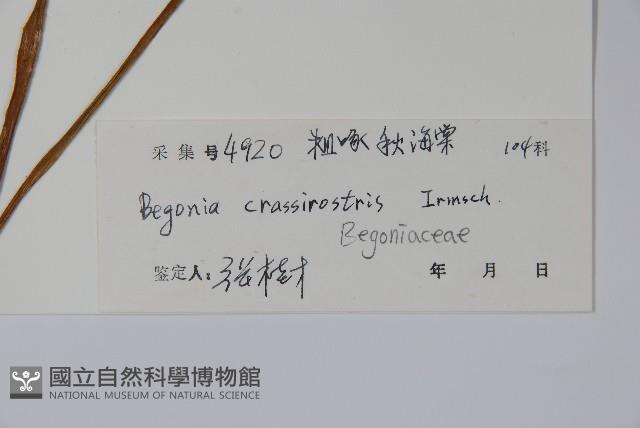 采集号4920 粗喙秋海棠 104科
Begonia crassirostris Irmsch.
Begoniaceae
鉴定人: 张桂才 年 月 日
國立自然科學博物館
NATIONAL MUSEUM OF NATURAL SCIENCE